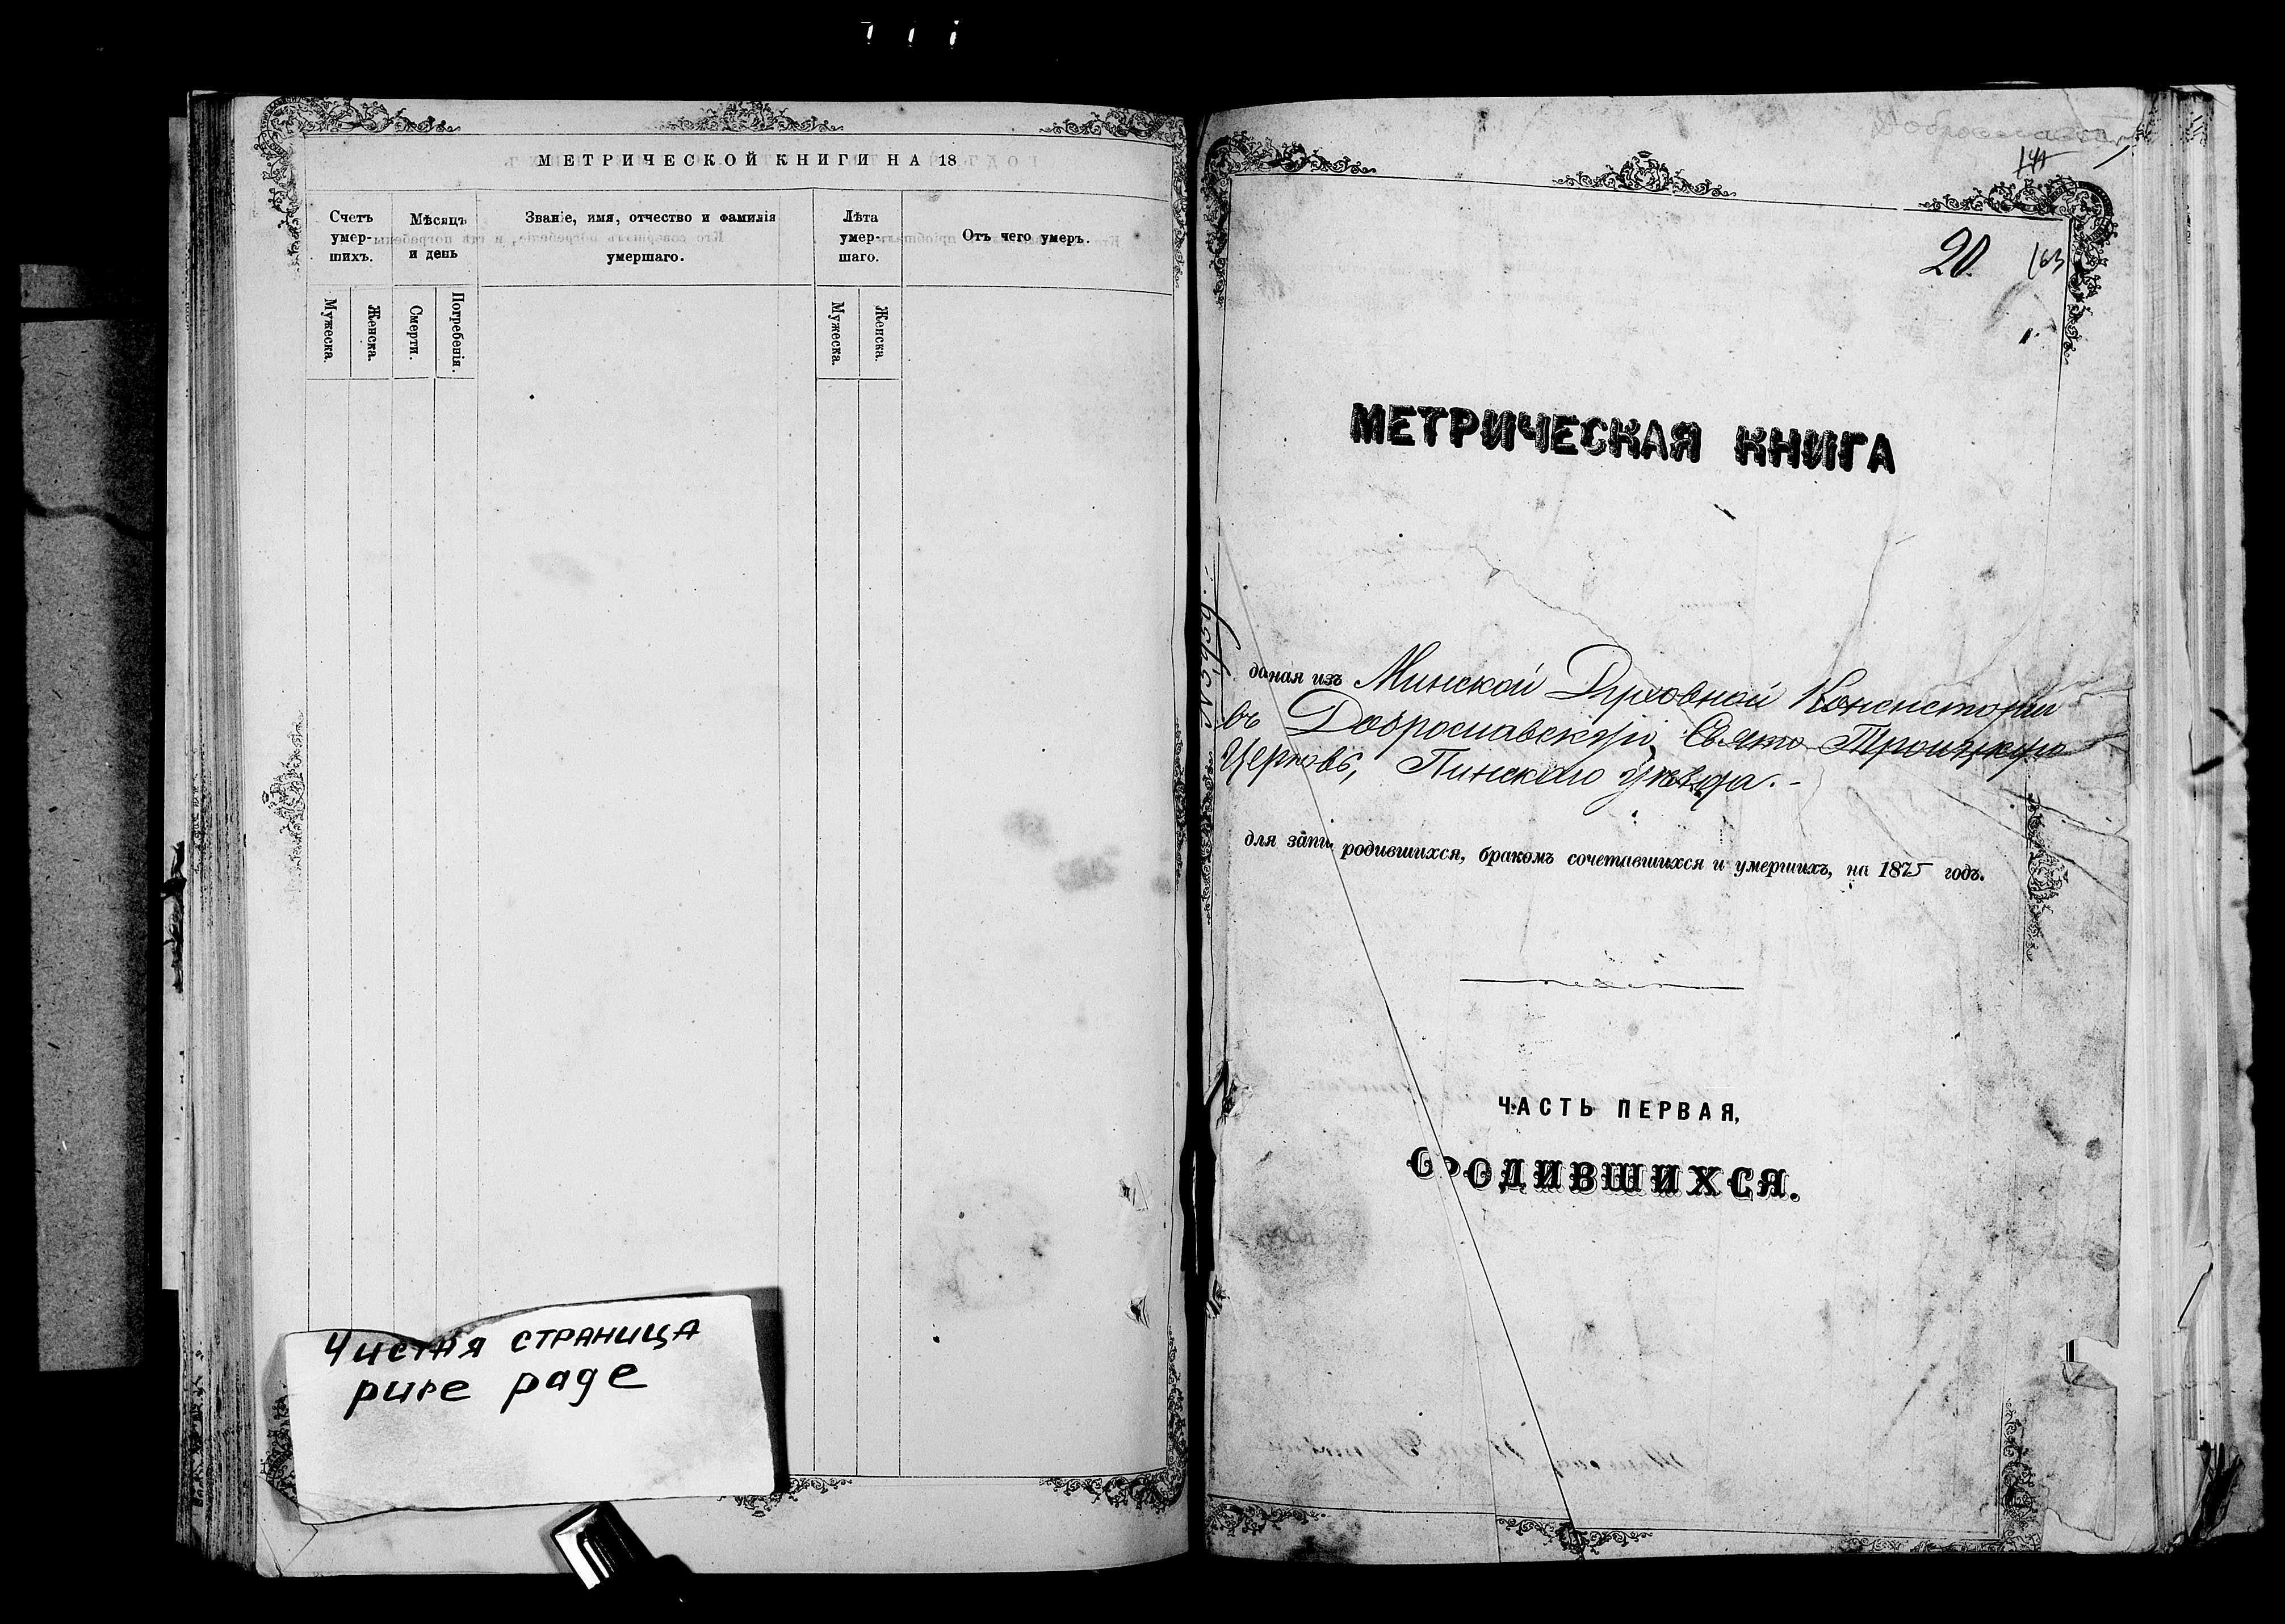 МЕТРИЧЕСКОЙ КНИГИ НА 18
Счетъ умер-шихъ.
Мѣсяцъ и день
Званіе, имя, отчество и фамилія умершаго.
Лѣта умер-шаго.
Отъ чего умеръ.
Мужеска.
Женска.
Смерти.
Погребенія.
Мужеска.
Женска.
Чистая страница
pure page
20
163
МЕТРИЧЕСКАЯ КНИГА
даная изъ Минской Духовной Консисторіи
въ Доброславскую Свято Троицкую
Церковь, Пинскаго уѣзда.
для запи родившихся, бракомъ сочетавшихся и умершихъ, на 1875 годъ.
ЧАСТЬ ПЕРВАЯ,
О РОДИВШИХСЯ.